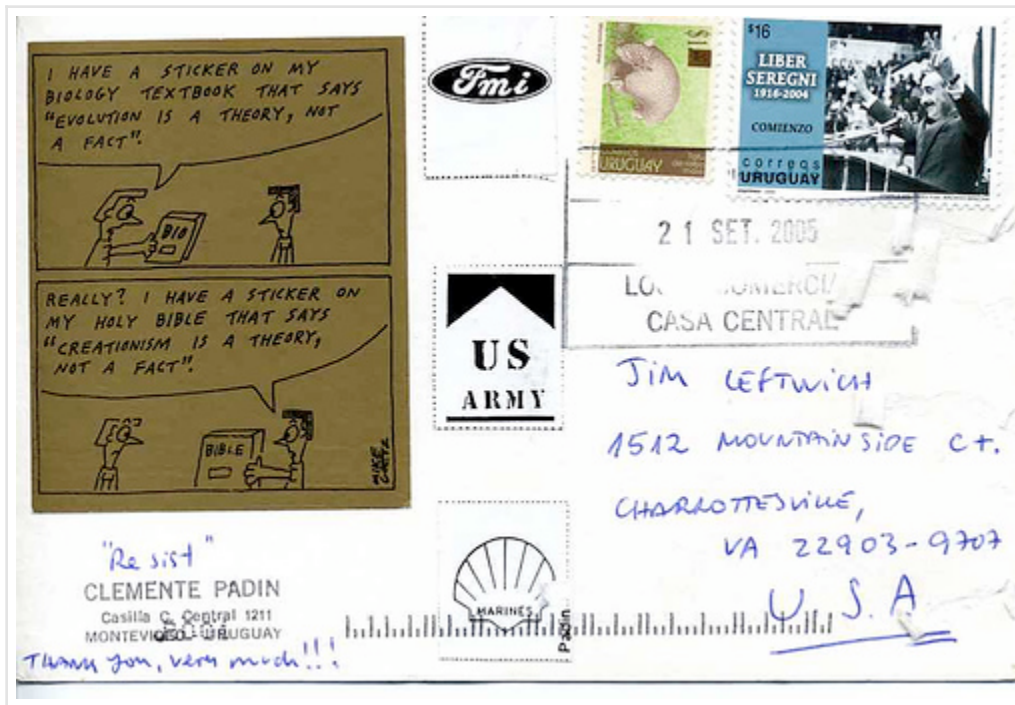 I HAVE A STICKER ON MY
BIOLOGY TEXTBOOK THAT SAYS
"EVOLUTION IS A THEORY, NOT
A FACT".
BIO
REALLY? I HAVE A STICKER ON
MY HOLY BIBLE THAT SAYS
"CREATIONISM IS A THEORY,
NOT A FACT".
BIBLE
Fmi
US
ARMY
MARINES
Padin
URUGUAY
$16
LIBER
SEREGNI
1916-2004
COMIENZO
correos
URUGUAY
21 SET. 2005
CASA CENTRAL
JIM LEFTWICH
1512 MOUNTAINSIDE CT.
CHARROTTESVILLE,
VA 22903-9707
U.S.A
"Resist"
CLEMENTE PADIN
Casilla C. Central 1211
MONTEVIDEO - URUGUAY
THANK you, very much!!!